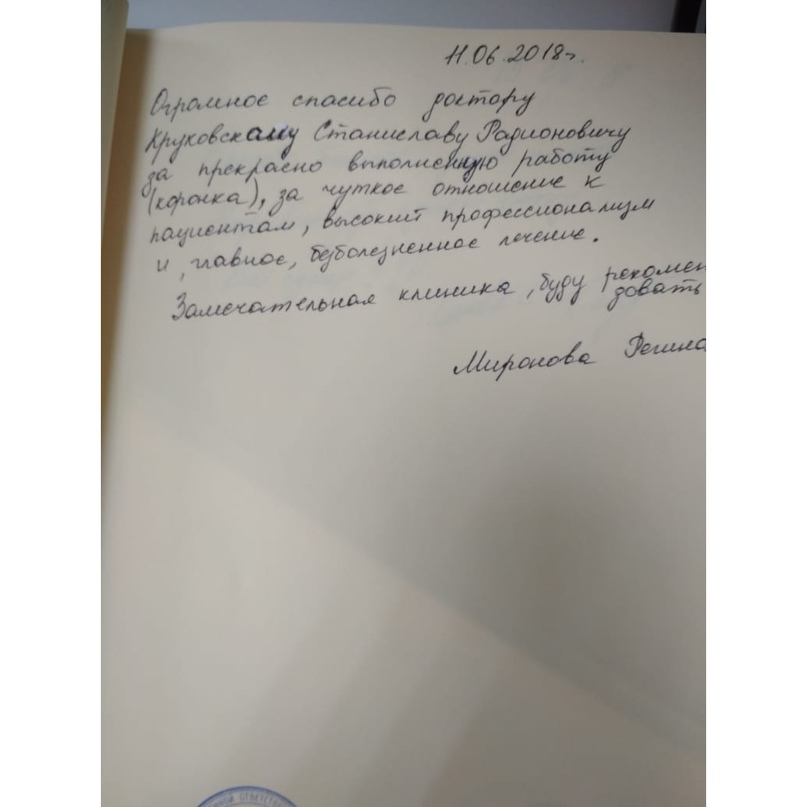 11.06.2018г.
Огромное спасибо доктору
Круковскому Станиславу Радионовичу
за прекрасно выполненную работу
(коронка), за чуткое отношение к
пациентам, высокий профессионализм
и, главное, безболезненное лечение.
Замечательная клиника, буду рекомен
довать
Миронова Регина
ОТВЕТСТВ